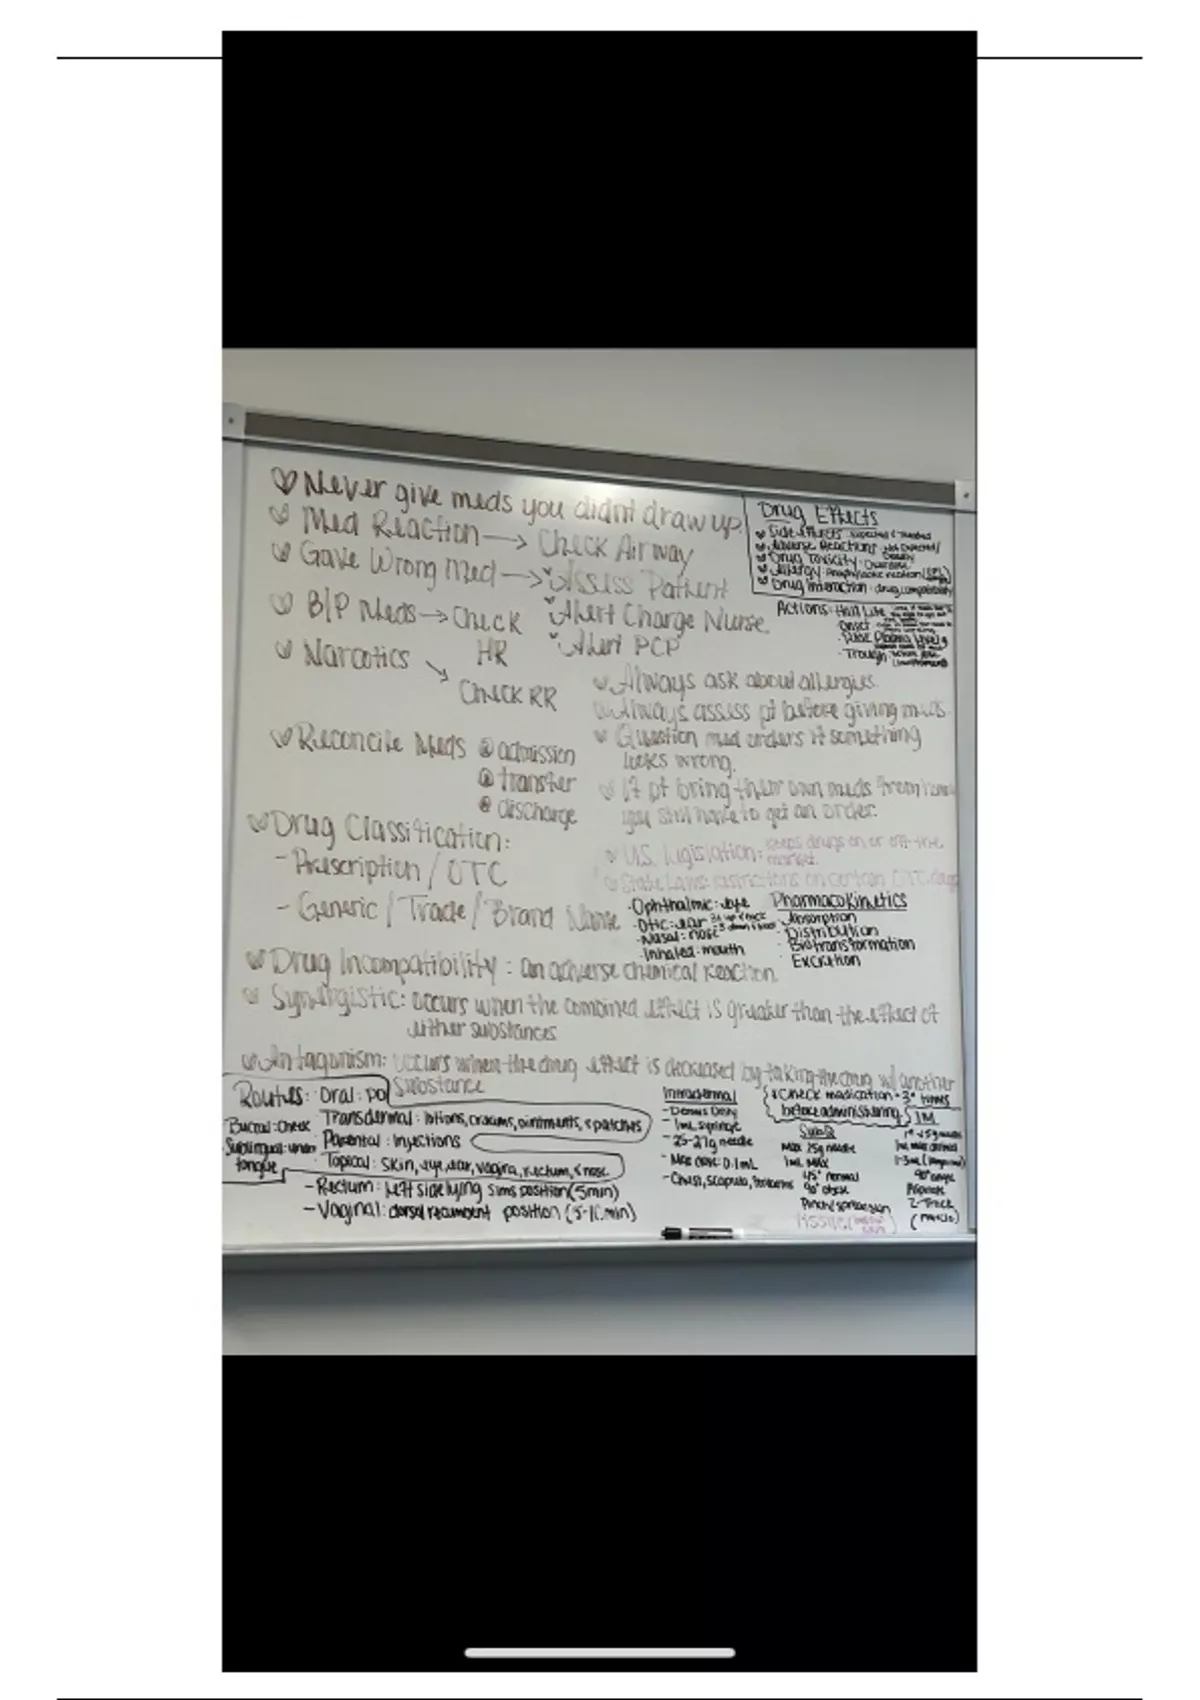 Never give meds you didnt draw up.
Med Reaction → Check Airway
Gave Wrong Med → Assess Patient
Alert Charge Nurse.
Alert PCP
B/P Meds → Check HR
Narcotics → Check RR
Reconcile Meds @ admission
@ transfer
@ discharge
Drug Classification:
- Prescription / OTC
- Generic / Trade / Brand Name
Drug Effects
Side Effects
Adverse Reactions Not Expected/
Drug Toxicity: Overdose
Allergy:
Drug Interaction: drug compatibility
Actions: Half Life
Onset
Trough
Always ask about allergies.
Always assess pt before giving meds.
Question med orders if something
looks wrong.
If pt bring their own meds from home
you still have to get an order.
U.S. Legislation: keeps drugs on or off the
market.
State Laws: restrictions on certain OTC drugs
·Ophthalmic: eye
·Otic: ear
·Nasal: nose
·Inhaled: mouth
Pharmacokinetics
·Absorption
·Distribution
·Biotransformation
·Excretion
Drug Incompatibility: an adverse chemical reaction.
Synergistic: occurs when the combined effect is greater than the effect of
either substances
Antagonism: occurs when the drug effect is decreased by taking the drug w/ another
substance
Routes: Oral: po
Buccal: Cheek
Sublingual: under
tongue
Transdermal: lotions, creams, ointments, & patches
Parental: Injections
Topical: skin, eye, ear, vagina, rectum, & nose.
- Rectum: left side lying sims position (5min)
- Vaginal: dorsal recumbent position (5-10.min)
Intradermal
- 1mL syringe
- 25-27g needle
- Max dose: 0.1mL
- Chest, scapula, forearms
*Check medication 3* times
before administering
SubQ
Max 25g needle
1mL Max
45° normal
90° obese
IM
90° angle
Aspirate
Z-Track